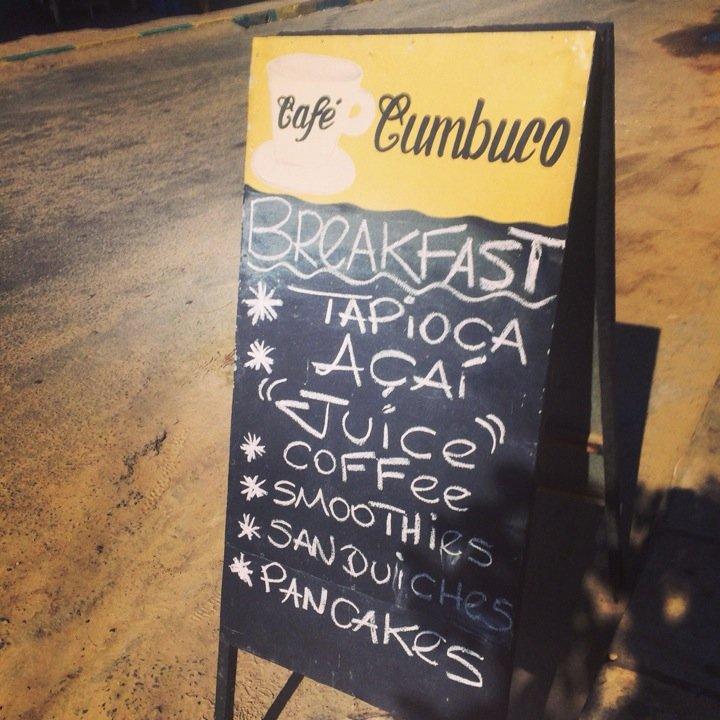 Café Cumbuco
BREAKFAST
* TAPIOCA
* AÇAÍ
"JUICE"
* COFFEE
* SMOOTHIES
* SANDUICHES
* PANCAKES